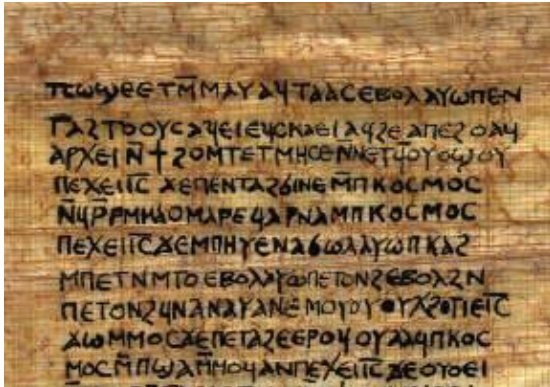 ⲧⲥⲱϣⲉⲉⲧⲙ̅ⲙⲁⲩⲁϥⲧⲁⲁⲥⲉⲃⲟⲗⲁⲩⲱⲡⲉⲛ
ⲧⲁϩⲧⲟⲟⲩⲥⲁϥⲉⲓⲉϥⲥⲕⲁⲉⲓⲁϥϩⲉⲁⲡⲉϩⲟⲁϥ
ⲁⲣⲭⲉⲓⲛ̅ϯϩⲟⲙⲧⲉⲧⲙⲏⲥⲉⲛⲛⲉⲧϥⲟⲩⲟϣⲟⲩ
ⲡⲉϫⲉⲓ̅ⲥ̅ϫⲉⲡⲉⲛⲧⲁϩϭⲓⲛⲉⲙ̅ⲡⲕⲟⲥⲙⲟⲥ
ⲛ̅ϥⲣ̅ⲣⲙⲙⲁⲟⲙⲁⲣⲉϥⲁⲣⲛⲁⲙⲡⲕⲟⲥⲙⲟⲥ
ⲡⲉϫⲉⲓ̅ⲥ̅ϫⲉⲙⲡⲏⲩⲉⲛⲁϭⲱⲗⲁⲩⲱⲡⲕⲁϩ
ⲙⲡⲉⲧⲛⲙⲧⲟⲉⲃⲟⲗⲁⲩⲱⲡⲉⲧⲟⲛϩⲉⲃⲟⲗϩⲛ
ⲡⲉⲧⲟⲛϩϥⲛⲁⲛⲁⲩⲁⲛⲉⲙⲟⲩⲟⲩⲭϩⲟⲧⲓⲉⲓ̅ⲥ̅
ϫⲱⲙⲙⲟⲥϫⲉⲡⲉⲧⲁϩⲉⲉⲣⲟϥⲟⲩⲁⲁϥⲡⲕⲟⲥ
ⲙⲟⲥⲙ̅ⲡϣⲁⲙ̅ⲙⲟϥⲁⲛⲡⲉϫⲉⲓ̅ⲥ̅ϫⲉⲟⲩⲟⲉⲓ